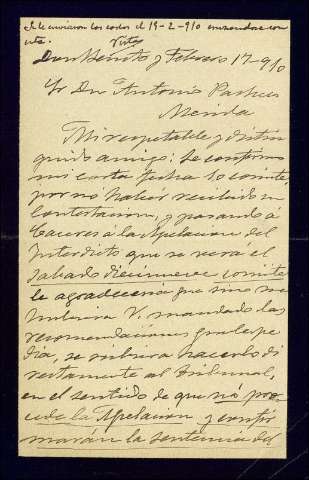 Se le enviaron las cartas el 19-2-910
Visto
Don Benito y Febrero 17-910
Sr Dn Antonio Pacheco
Merida
Mi respetable y distin
guido amigo: Le confirmo
mi carta fecha 10 corrte,
por no haber recibido su
contestacion, y pasando á
Caceres á la Apelacion del
Interdicto que se verá el
Sabado diecinueve corrte
le agradeceria que si no me
hubiera V. mandado las
recomendaciones que le pe
dia, se sirviera hacerlo di
rectamente al Tribunal,
en el sentido de que no pro
cede la Apelacion y confir
marán la sentencia del